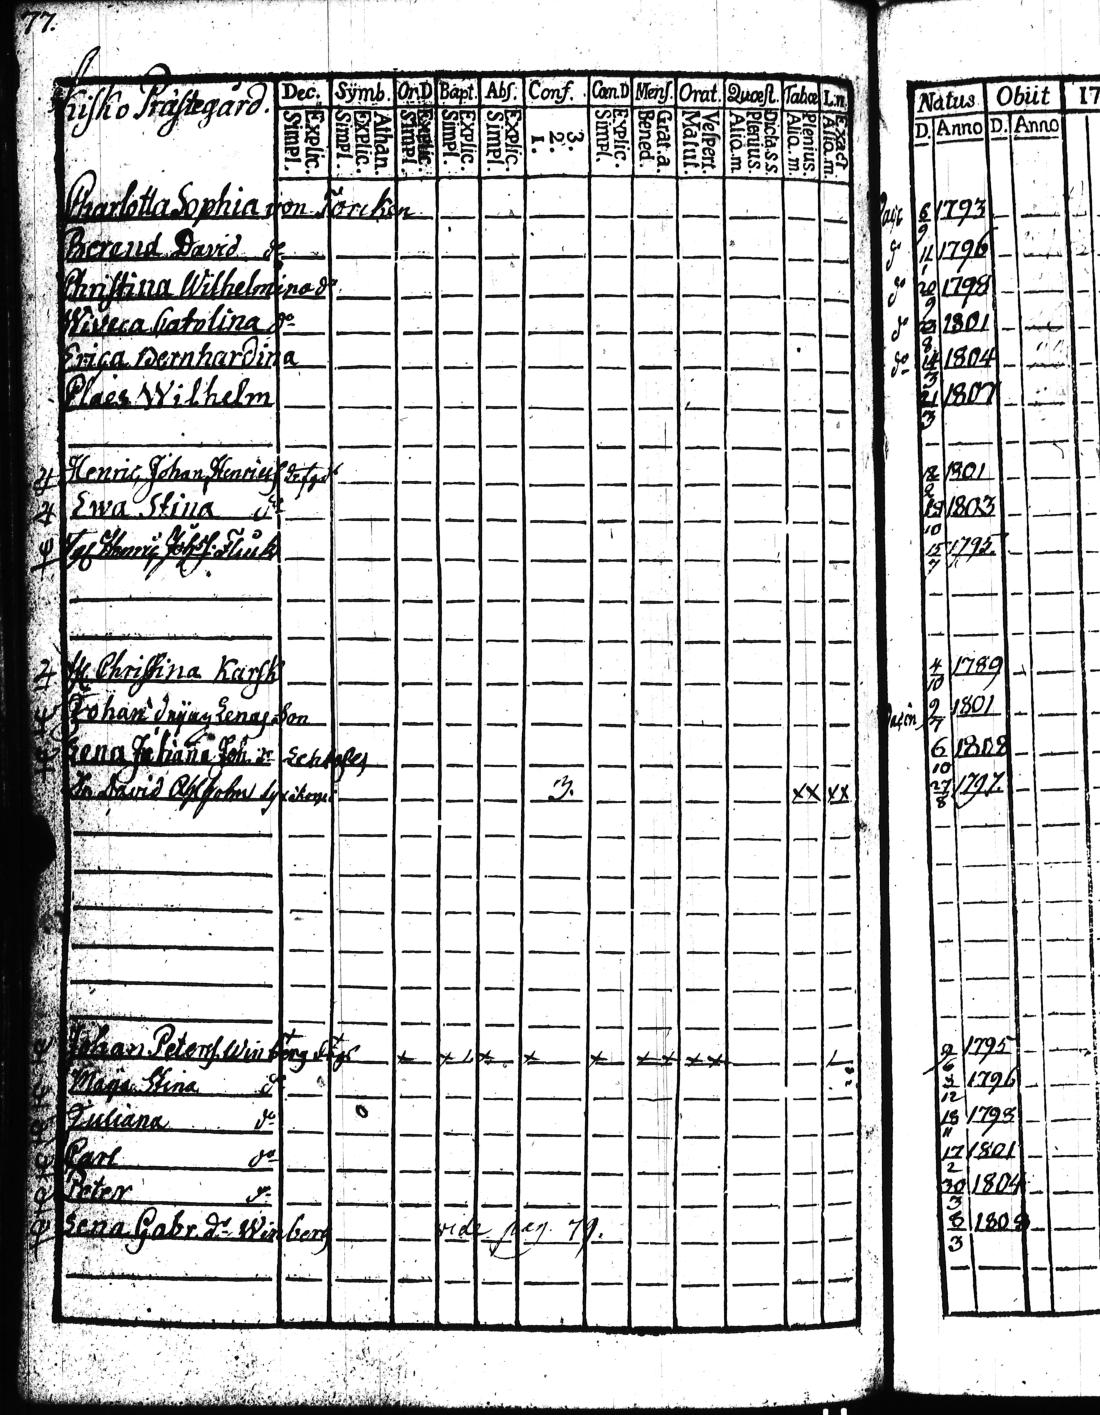 77.
Kisko Prästegård.
Dec. Sÿmb. Or.D Bapt. Abs. Conf. Cœn.D Mens. Orat. Quœst. Tabœ L.n.
Explic. Simpl. Athan. Explic. Simpl. Explic. Simpl. Explic. Simpl. Explic. Simpl. 3. 2. 1. Explic. Simpl. Grat.a. Bened. Vespert. Matut. Dicta S.S. Plenius. Aliq.m Plenius. Aliq.m. Exact Aliq.m.
Natus Obiit 17
D. Anno D. Anno
Charlotta Sophia von Törcken 6/9 1793
Berend David do 11/1 1796
Christina Wilhelmina do 20/9 1798
Wiveca Carolina do 23/8 1801
Erica Bernhardina 14/3 1804
Claes Wilhelm 21/3 1807
Henric Johan Henricss 1801
Ewa Stina do 19/10 1803
Henric Johss. Fluk 15/7 1795
Christina Karsk 4/10 1789
Johan Lenas Son 9/7 1801
Lena Juliana Joh. dr 6/10 1808
David 3. xx xx 27/8 1797
Johan Peterss. Winberg 9/6 1795
Maja Stina do 3/12 1796
Juliana do 18/11 1798
Carl do 17/2 1801
Peter do 30/3 1804
Lena Gabr. dr Winberg vide pag. 79. 8/3 1808